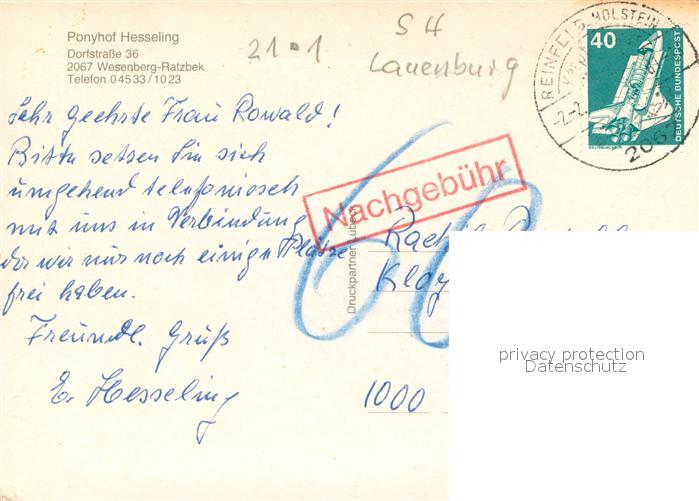 Ponyhof Hesseling
Dorfstraße 36
2067 Wesenberg-Ratzbek
Telefon 0 45 33 / 10 23
21.1
SH
Lauenburg
REINFELD, HOLSTEIN
-2.-2.
206
40
DEUTSCHE BUNDESPOST
Sehr geehrte Frau Rowald!
Bitte setzen Sie sich
umgehend telefonisch
mit uns in Verbindung
da wir nur noch einige Plätze
frei haben.
Freundl. Gruß
E. Hesseling
Nachgebühr
60
Druckpartner Lübeck
1000
privacy protection
Datenschutz